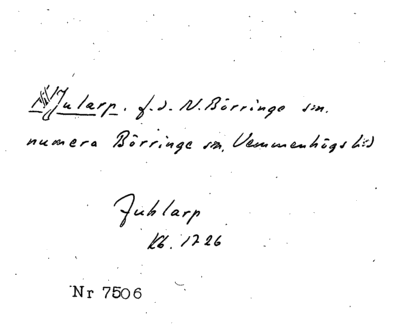 Jularp. f.d. N. Börringe sn.
numera Börringe sn, Vemmenhögs hd
Juhlarp
Kb. 1726
Nr 7506